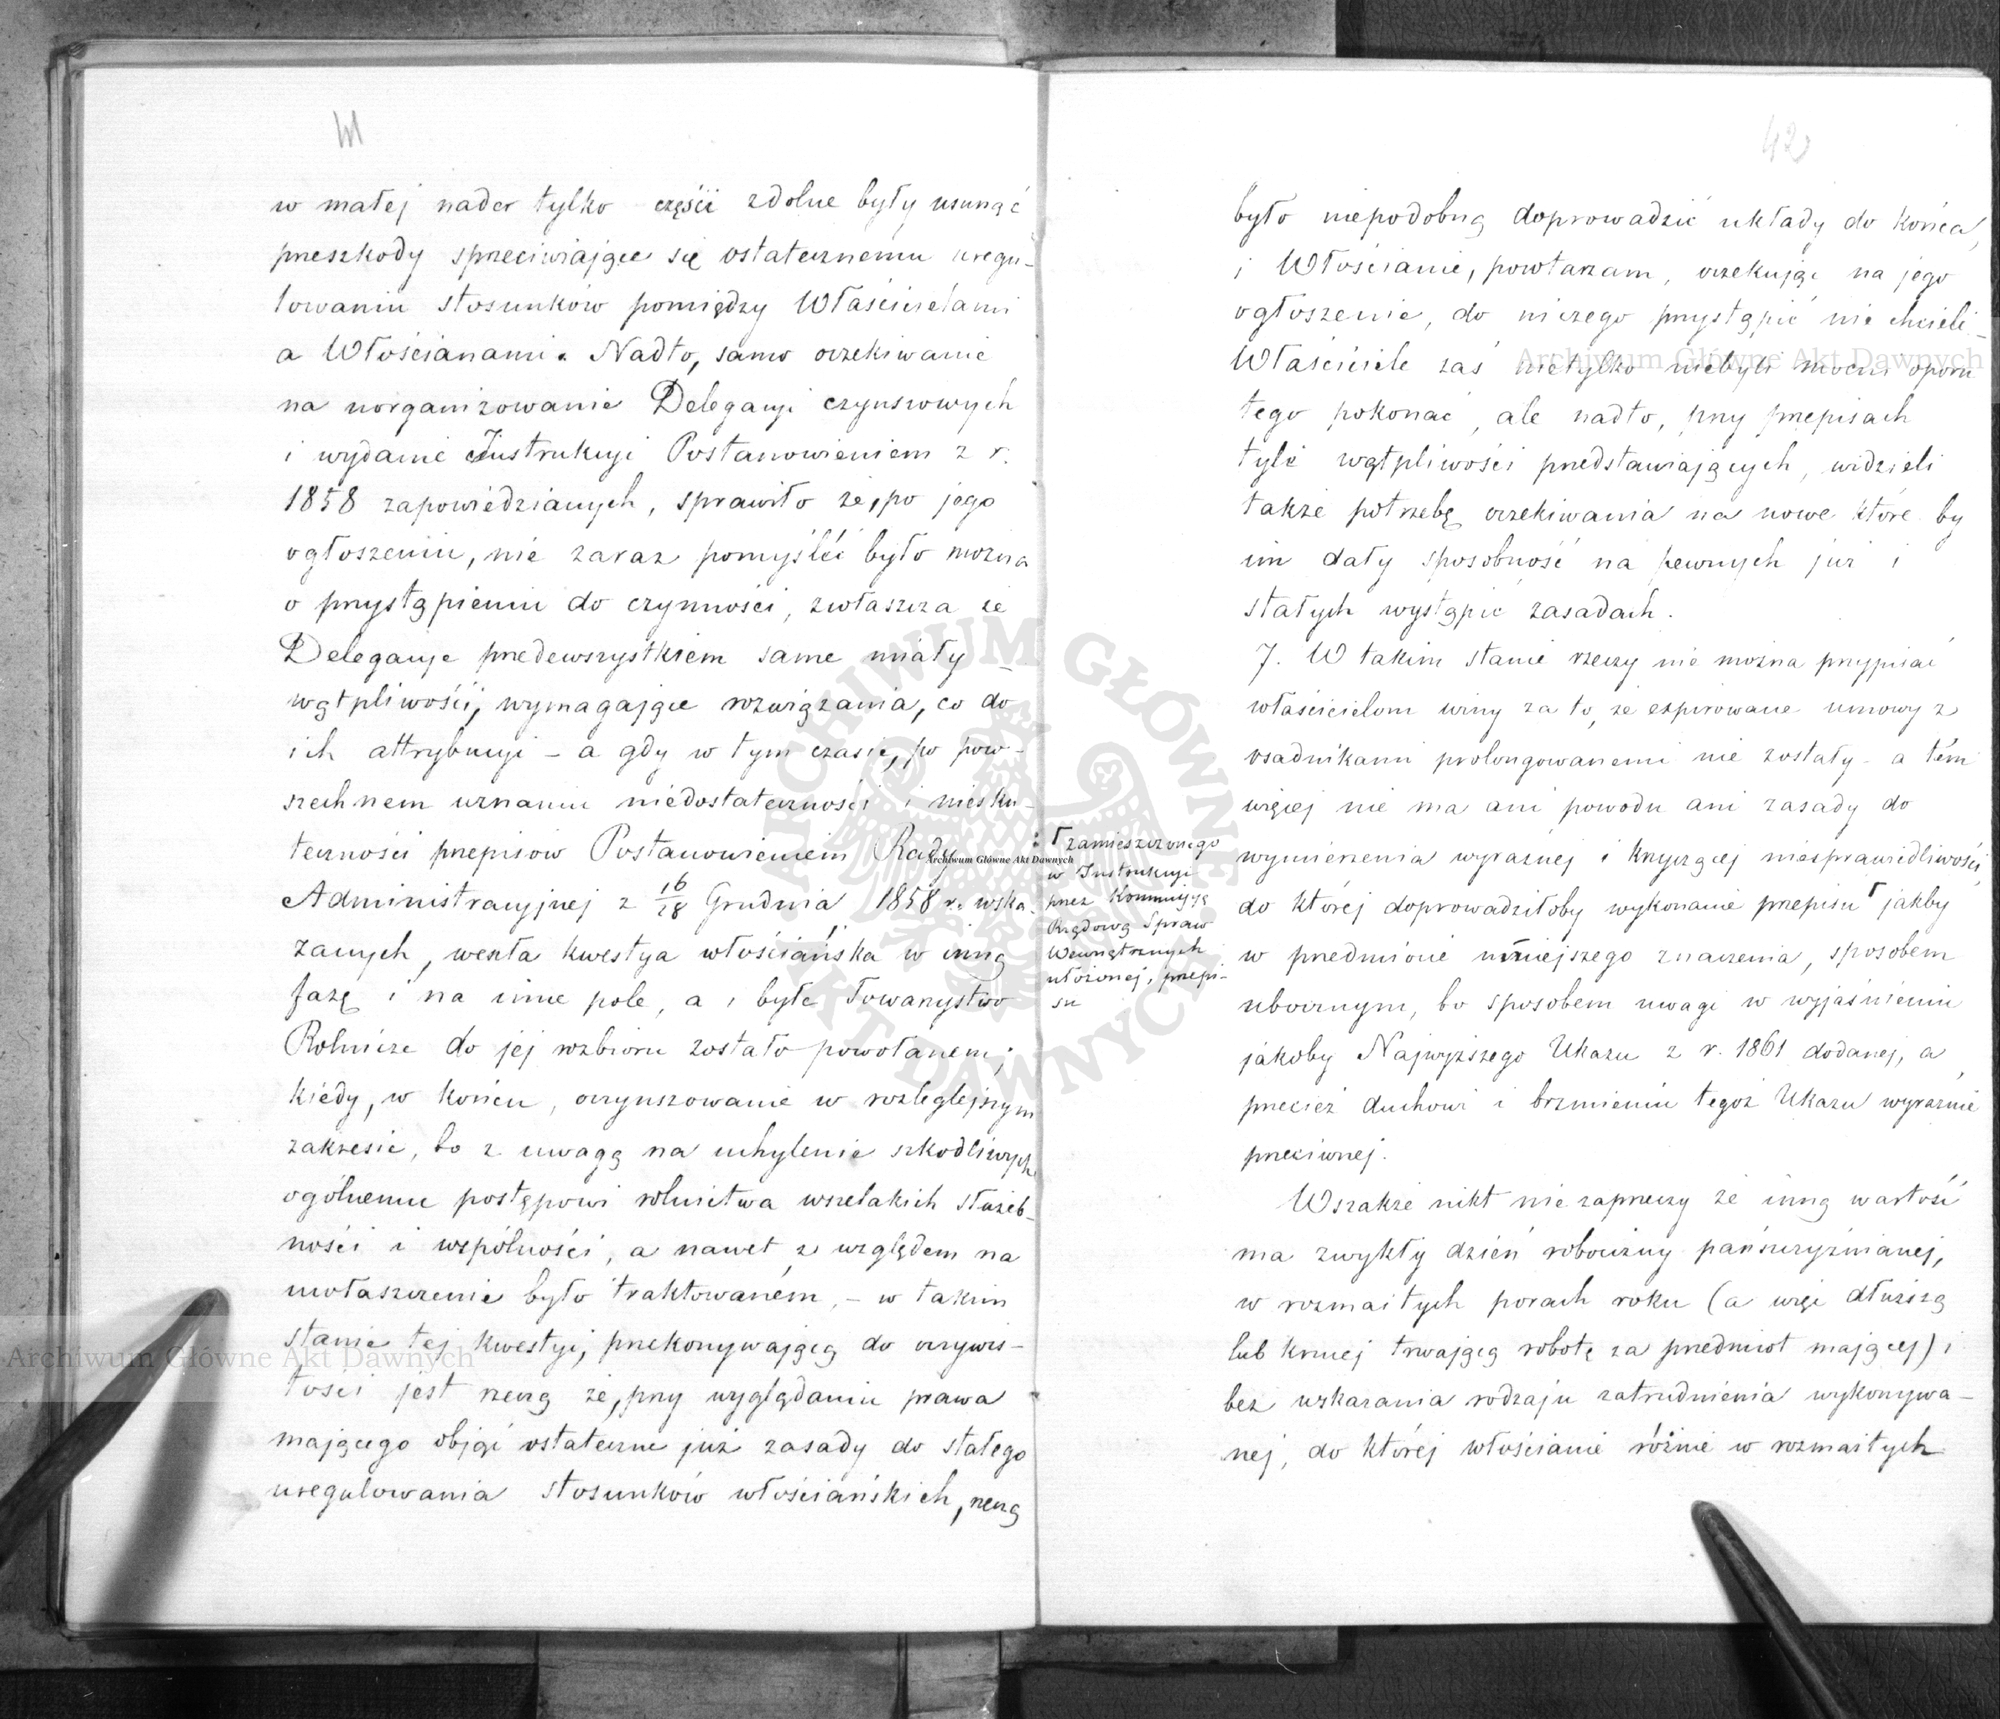 41
w małej nader tylko części zdolne były usunąć
przeszkody sprzeciwiające się ostatecznemu uregu-
lowaniu stosunków pomiędzy Właścicielami
a Włościanami. Nadto, samo oczekiwanie
na uorganizowanie Delegacyi czynszowych
i wydanie Instrukcyi Postanowieniem z r.
1858 zapowiedzianych, sprawiło że, po jego
ogłoszeniu, nie zaraz pomyśleć było można
o przystąpieniu do czynności, zwłaszcza że
Delegacye przedewszystkiem same miały
wątpliwości, wymagające rozwiązania, co do
ich attrybucyi – a gdy w tym czasie, po pow-
szechnem uznaniu niedostateczności i niesku-
teczności przepisów Postanowieniem Rady
Administracyjnej z 16/28 Grudnia 1858 r. wska-
zanych, weszła kwestya włościańska w inną
fazę i na inne pole, a i byłe Towarzystwo
Rolnicze do jej rozbioru zostało powołanem;
kiedy, w końcu, oczynszowanie w rozleglejszym
zakresie, bo z uwagą na uchylenie szkodliwych
ogólnemu postępowi rolnictwa wszelakich służeb-
ności i wspólności, a nawet z względem na
uwłaszczenie było traktowaném, – w takim
stanie tej kwestyi, przekonywającą do oczywis-
tości jest rzeczą że, przy wyglądaniu prawa
mającego objąć ostateczne już zasady do stałego
uregulowania stosunków włościańskich, rzeczą
42
było niepodobną doprowadzić układy do końca,
i Włościanie, powtarzam, oczekując na jego
ogłoszenie, do niczego przystąpić nie chcieli –
Właściciele zaś nietylko niebyli mocni oporu
tego pokonać, ale nadto, przy przepisach
tyle wątpliwości przedstawiających, widzieli
także potrzebę oczekiwania na nowe które by
im dały sposobność na pewnych już i
stałych wystąpić zasadach.
7. W takim stanie rzeczy nie można przypisać
właścicielom winy za to, że expirowane umowy z
osadnikami prolongowanemi nie zostały – a tém
więcej nie ma ani powodu ani zasady do
wymierzenia wyraźnej i krzyczącej niesprawiedliwości,
do której doprowadziłoby wykonanie przepisu ⌈ jakby
w przedmiocie mniejszego znaczenia, sposobem
ubocznym, bo sposobem uwagi w wyjaśnieniu
jakoby Najwyższego Ukazu z r. 1861 dodanej, a,
przecież duchowi i brzmieniu tegoż Ukazu wyraźnie
przeciwnej.
Wszakże nikt nie zaprzeczy że inną wartość
ma zwykły dzień roboczny pańszczyźnianej,
w rozmaitych porach roku (a więc dłuższą
lub krócej trwającą robotę za przedmiot mającej) i
bez wskazania rodzaju zatrudnienia wykonywa-
nej, do której włościanie różnie w rozmaitych
⌈ zamieszczonego
w Instrukcyi
przez Kommissyę
Rządową Spraw
Wewnętrznych
ułożonej, przepi-
su
Archiwum Główne Akt Dawnych
Archiwum Główne Akt Dawnych
Archiwum Główne Akt Dawnych
ARCHIWUM GŁÓWNE AKT DAWNYCH